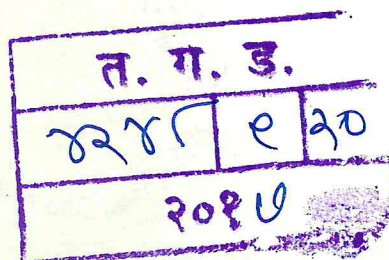 त. ग. ड.
४२४८ १ २०
२०१७